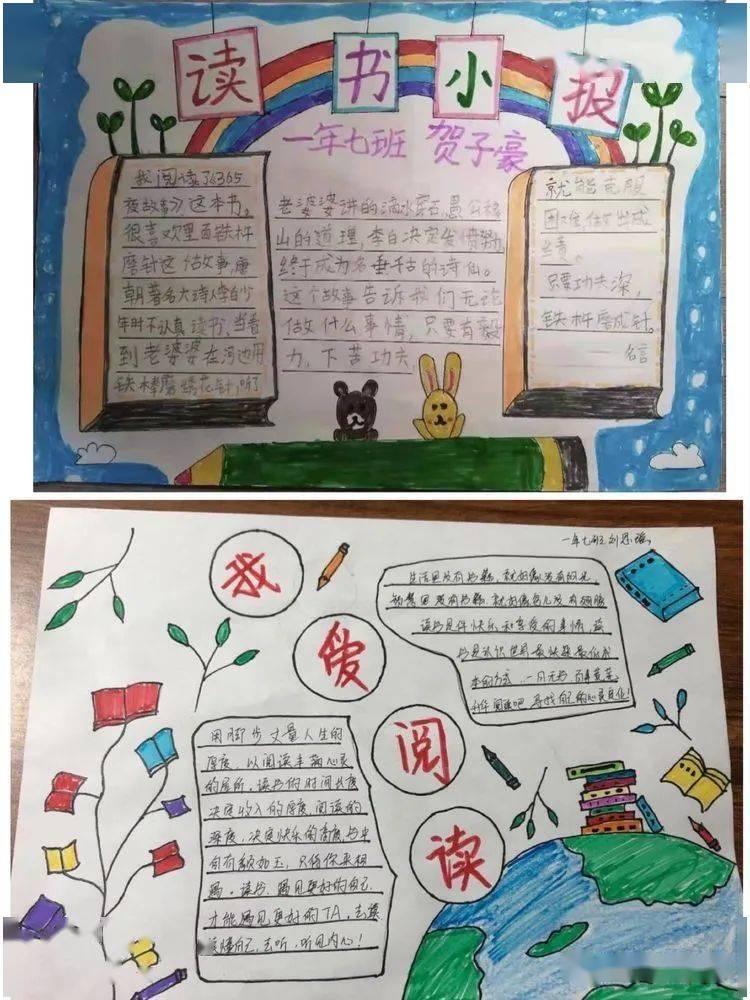 读书小报
一年七班 贺子豪
我阅读了《365
夜故事》这本书。
很喜欢里面铁杵
磨针这个故事,唐
朝著名大诗人李白少
年时不认真读书,当看
到老婆婆在河边用
铁棒磨绣花针,听了
老婆婆讲的滴水穿石,愚公移
山的道理,李白决定发愤努力,
终于成为名垂千古的诗仙。
这个故事告诉我们无论
做什么事情,只要有毅
力,下苦功夫,
就能克服
困难,做出成
绩。
只要功夫深,
铁杵磨成针。
——名言
一年七班
我爱阅读
生活里没有书籍,就好像没有阳光
智慧里没有书籍,就好像鸟儿没有翅膀
读书是件快乐和喜爱的事情,
书是认识世界最快捷最低成
本的方式,一日无书 百事荒芜。
寻找自己的心灵
用脚步丈量人生的
厚度,以阅读丰满心灵
的居所,读书的时间长度
决定收入的厚度,阅读的
深度,决定快乐的高度,书中
自有颜如玉,只待你来相
遇。读书,遇见更好的自己
才能遇见更好的TA,去读
懂自己,去听,听见内心!